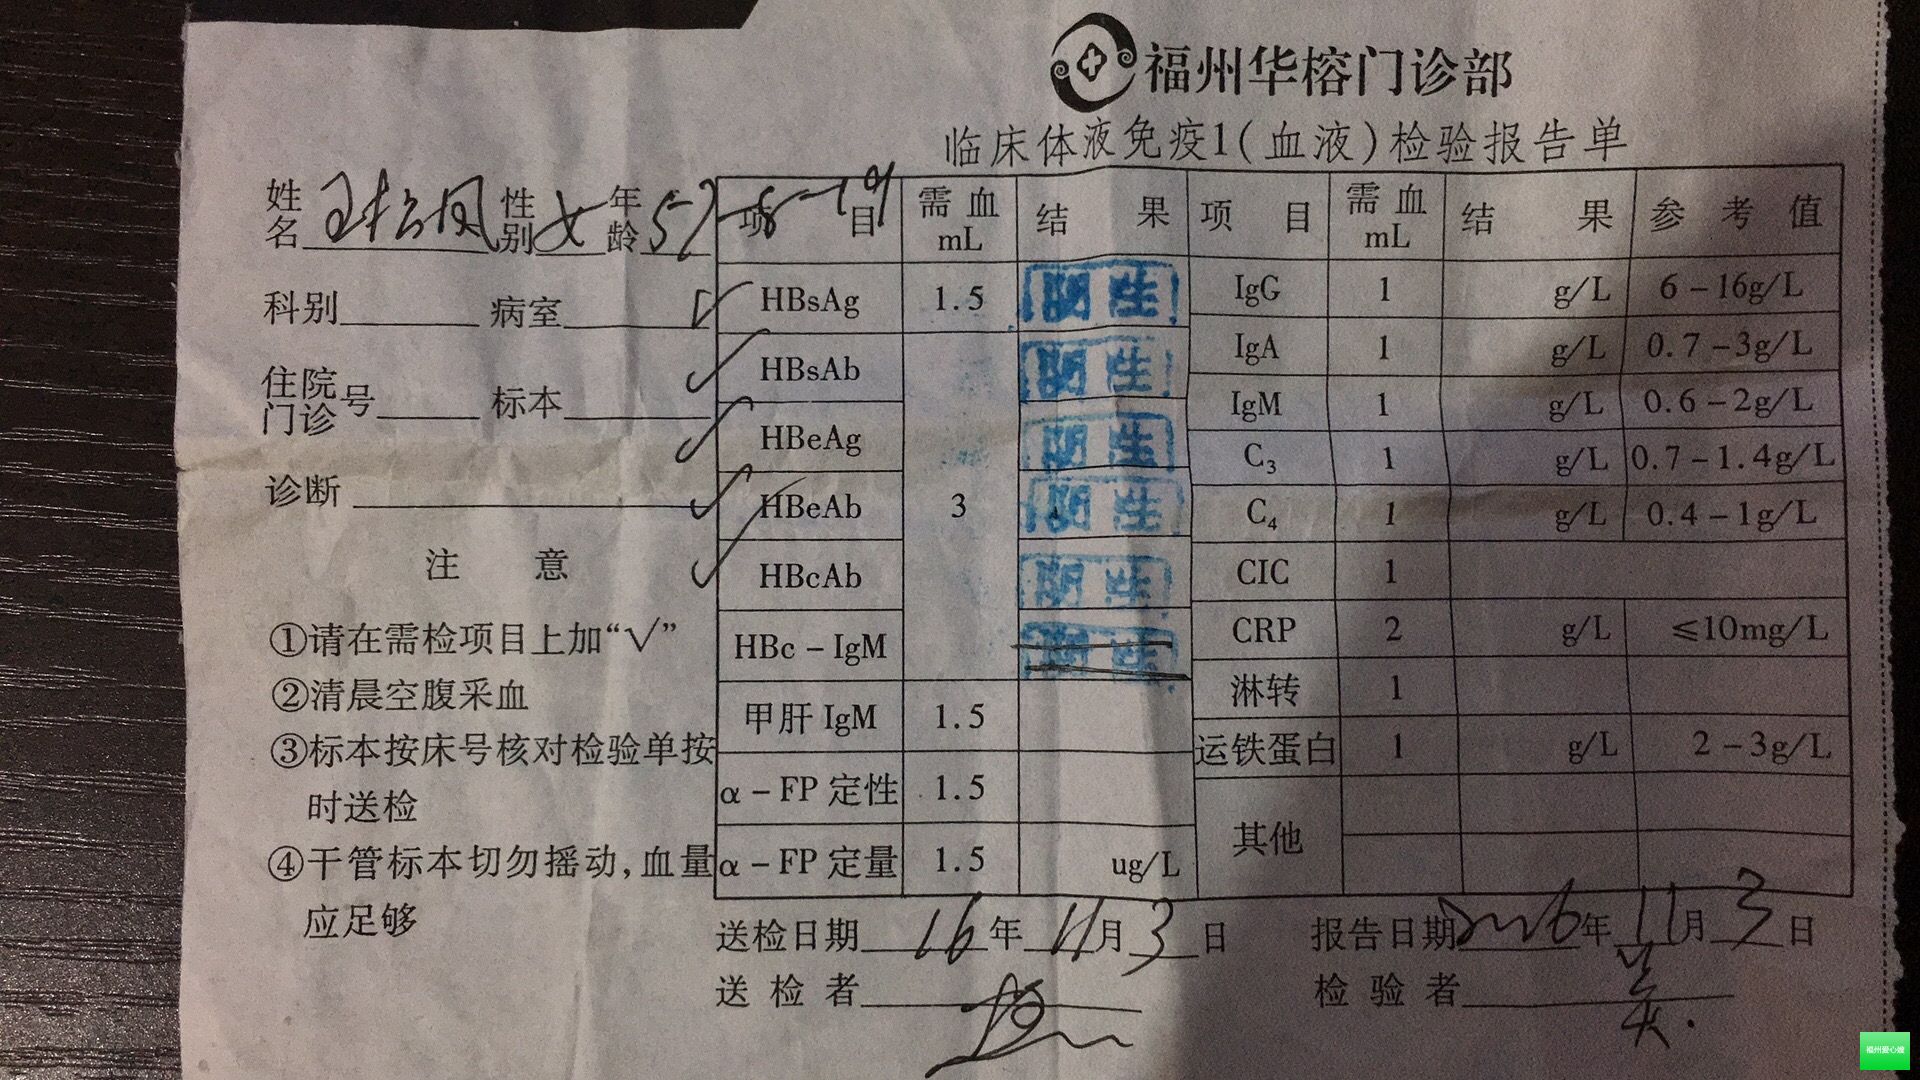 福州华榕门诊部
临床体液免疫1(血液)检验报告单
姓名 性别 女 年龄 57
科别 病室
住院门诊号 标本
诊断
注 意
①请在需检项目上加“√”
②清晨空腹采血
③标本按床号核对检验单按
时送检
④干管标本切勿摇动,血量
应足够
项 目 需血mL 结 果 项 目 需血mL 结 果 参 考 值
√ HBsAg 1.5 阴性 IgG 1 g/L 6-16g/L
√ HBsAb 阴性 IgA 1 g/L 0.7-3g/L
√ HBeAg 阴性 IgM 1 g/L 0.6-2g/L
C₃ 1 g/L 0.7-1.4g/L
√ HBeAb 3 阴性 C₄ 1 g/L 0.4-1g/L
√ HBcAb 阴性 CIC 1
HBc-IgM 阴性 CRP 2 g/L ≤10mg/L
甲肝IgM 1.5 淋转 1
运铁蛋白 1 g/L 2-3g/L
α-FP定性 1.5
α-FP定量 1.5 ug/L 其他
送检日期 16年11月3日 报告日期 2016年11月3日
送检者 检验者
福州爱心嫂